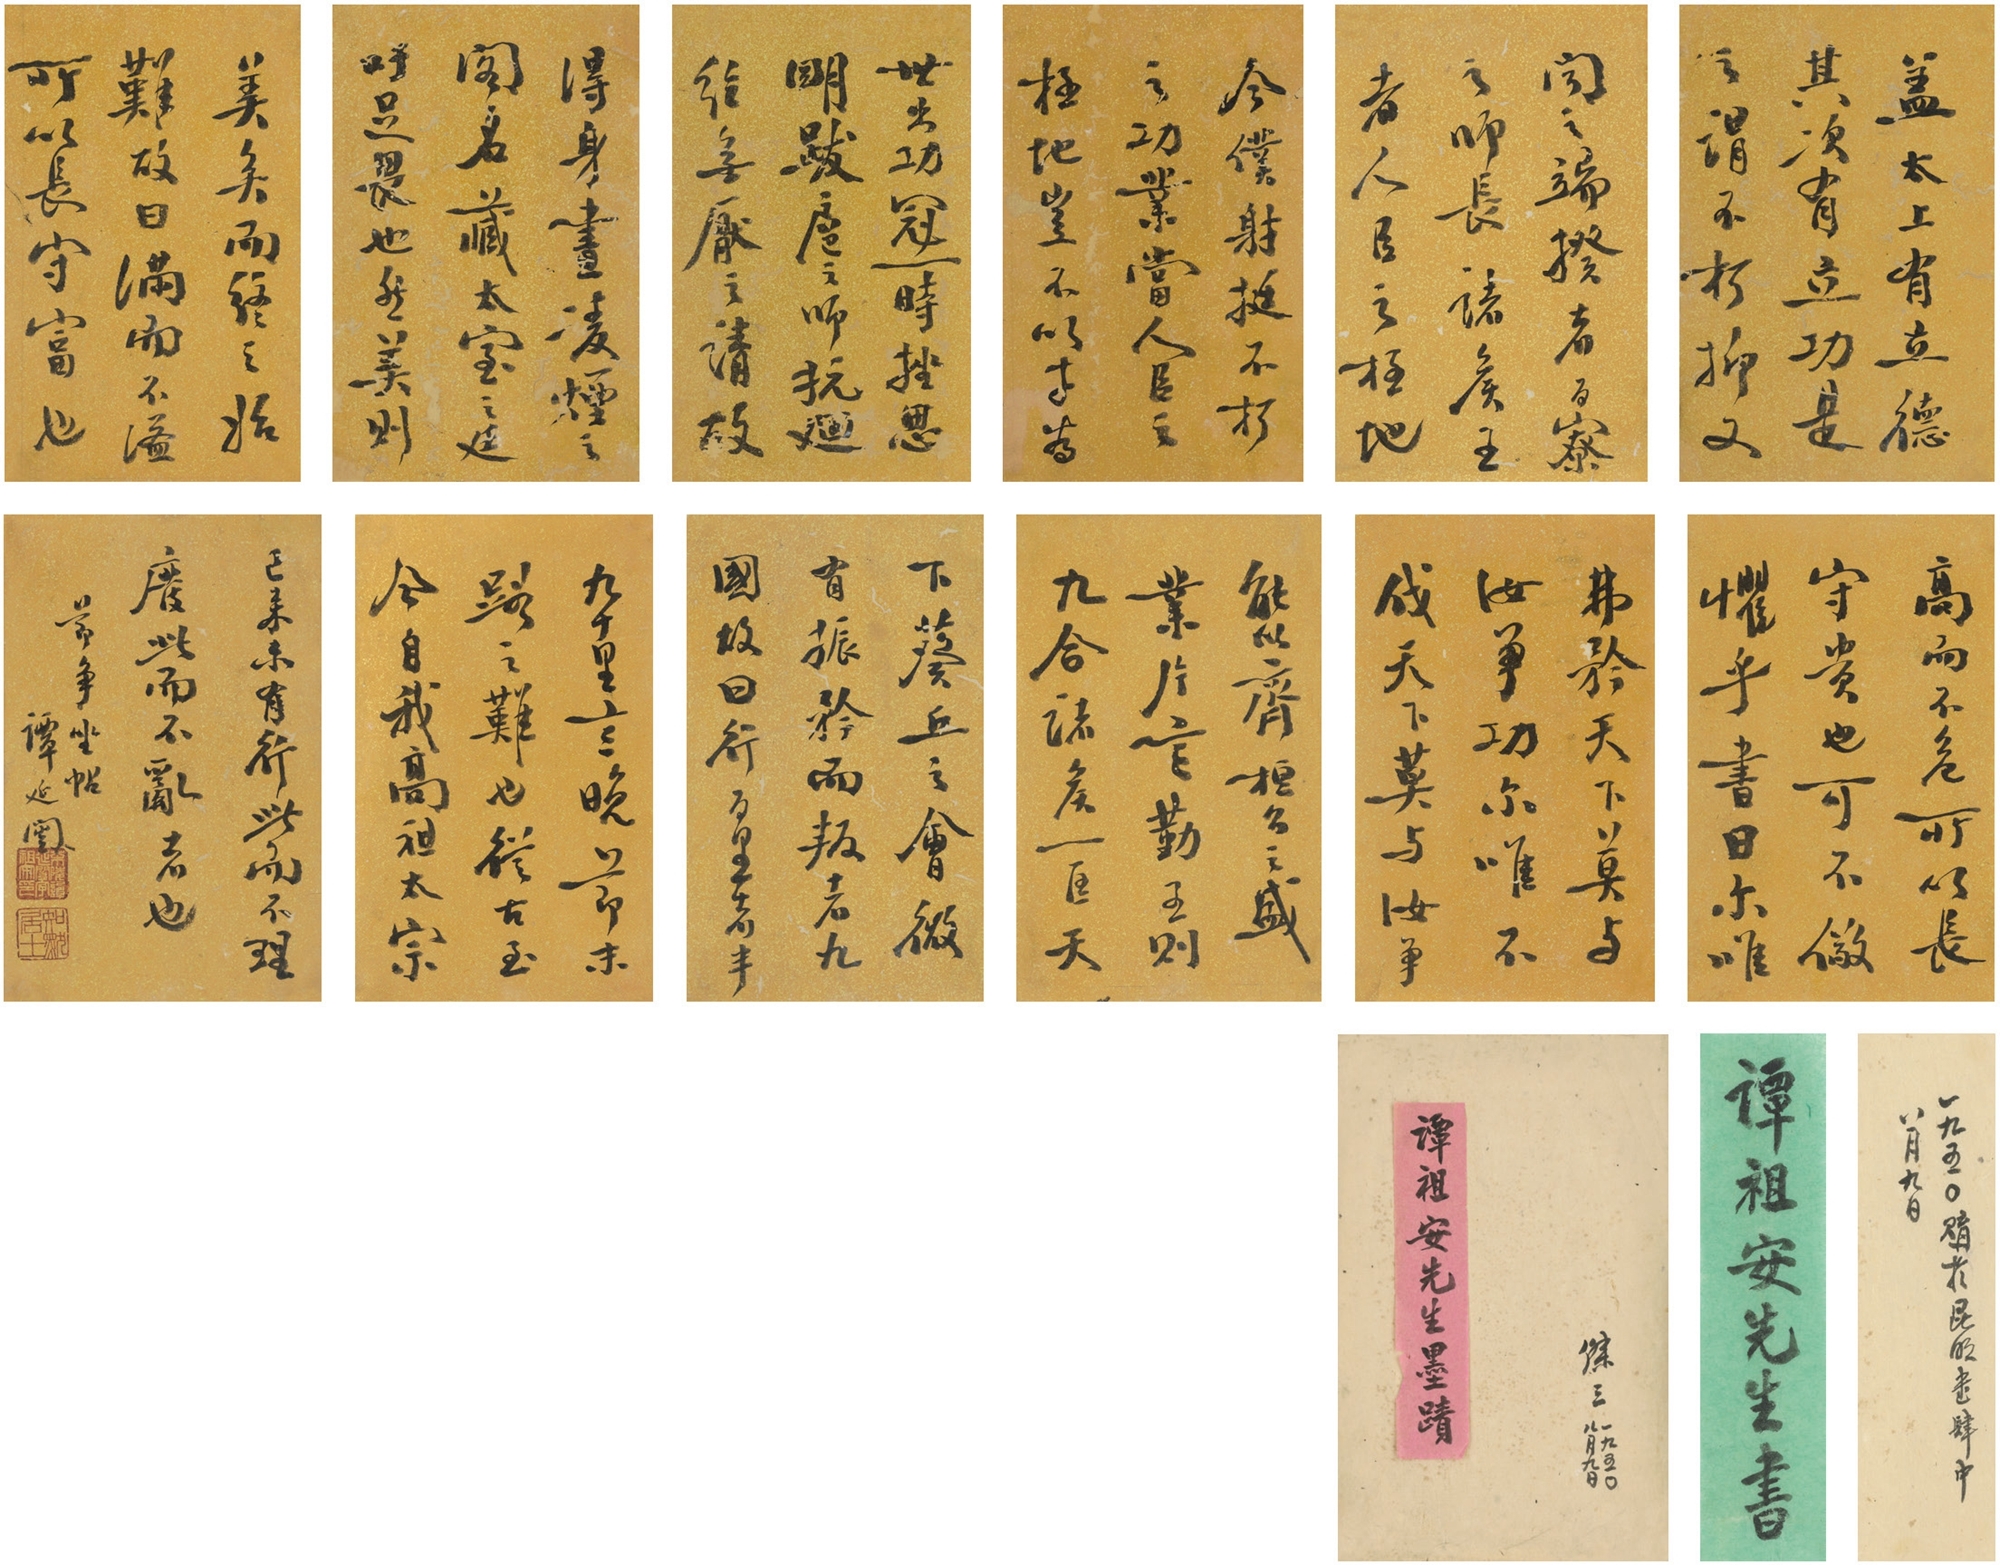 蓋太上有立德
其次有立功是
之謂不朽抑又
聞之端揆者百寮
之師長諸侯王
者人臣之極地
今僕射挺不朽
之功業當人臣之
極地豈不以才為
世出功冠一時挫思
明跋扈之師抗迴
紇無厭之請故
得身畫淩煙之
閣名藏太室之廷
吁足畏也然美則
美矣而終之始
難故曰滿而不溢
所以長守富也
高而不危所以長
守貴也可不儆
懼乎書曰尔唯
弗矜天下莫与
汝爭功尔唯不
伐天下莫与汝爭
能以齊桓公之盛
業片言勤王則
九合諸侯一匡天
下葵丘之會微
有振矜而叛者九
國故曰行百里者半
九十里言晚節末
路之難也從古至
今自我高祖太宗
已來未有行此而不理
廢此而不亂者也
節爭坐帖
譚延闓
一九五〇購於昆明書肆中
八月九日
譚祖安先生書
傑三
一九五〇
八月九日
譚祖安先生墨蹟